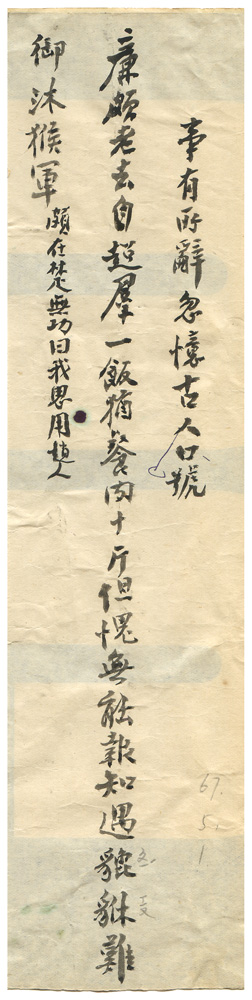 事有所辭忽懷古人口號
廉頗老去自超羣一飯猶餐肉十斤但愧無能報知遇貔貅難
御沐猴軍頗在楚無功曰我思用趙人
67.
5.
1